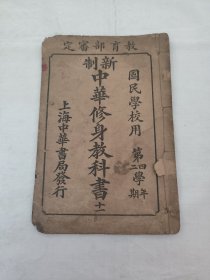 教育部審定
國民學校用
第四學年
第二期
新制
中華修身教科書
十一
上海中華書局發行